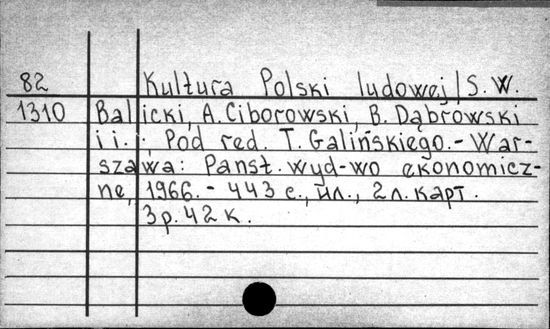 82 Kultura Polski ludowej / S. W.
1310 Balicki, A. Ciborowski, B. Dąbrowski
i i. ; Pod red. T. Galińskiego. - War-
szawa: Państ. wyd-wo ekonomicz-
ne, 1966. - 443 с., ил., 2 л. карт.
3 р. 42 к.